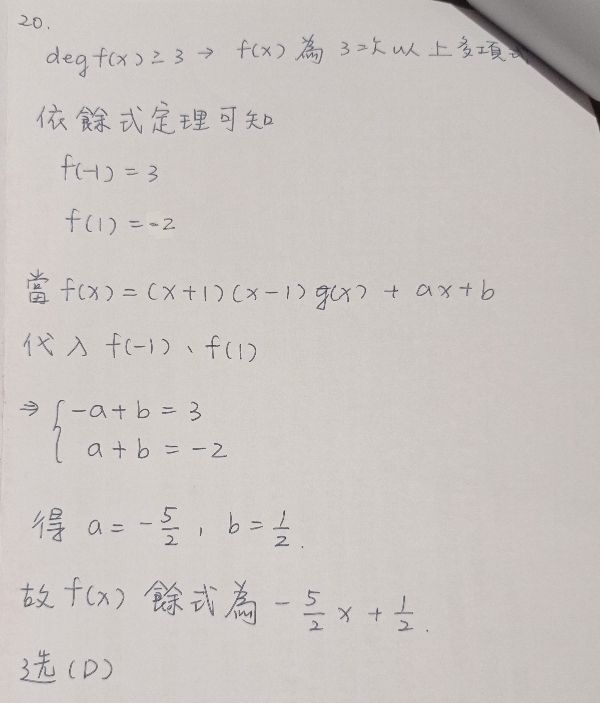 20.
deg f(x) ≥ 3 → f(x) 為 3次以上多項式
依餘式定理可知
f(-1) = 3
f(1) = -2
當 f(x) = (x+1)(x-1) g(x) + ax+b
代入 f(-1)、f(1)
⇒ { -a+b = 3
a+b = -2
得 a = -5/2 , b = 1/2.
故 f(x) 餘式為 -5/2 x + 1/2.
选(D)